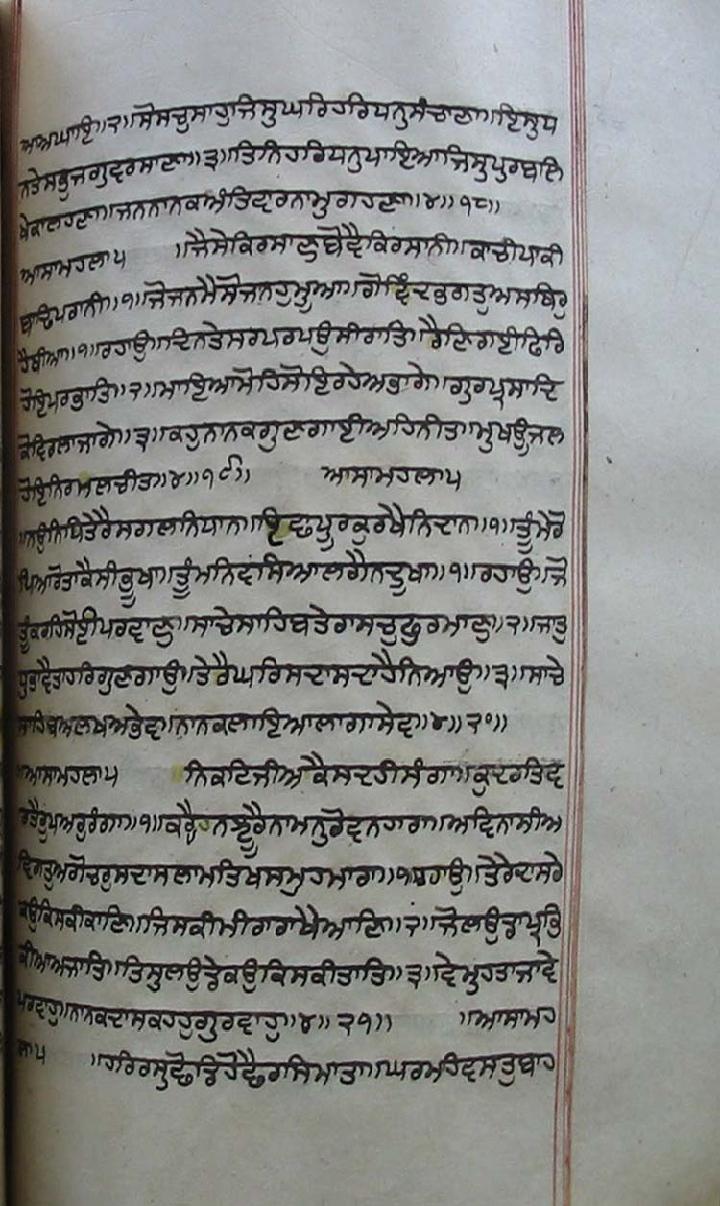 ਅਅਘਾਇ॥੨॥ਸੋਸਚੁਸਾਹੁਜਿਸੁਘਰਿਹਰਿਧਨੁਸੰਚਾਣਾ॥ਇਸੁਧ
ਨਤੇਸਭੁਜਗੁਵਰਸਾਣਾ॥੩॥ਤਿਨਿਹਰਿਧਨੁਪਾਇਆਜਿਸੁਪੁਰਬਲਿ
ਖੇਕਾਲਹਣਾ॥ਜਨਨਾਨਕਅੰਤਿਵਾਰਨਾਮੁਗਹਣਾ॥੪॥੧੮॥
ਆਸਾਮਹਲਾ੫ ॥ਜੈਸੇਕਿਰਸਾਣੁਬੋਵੈਕਿਰਸਾਨੀ॥ਕਾਚੀਪਾਕੀ
ਬਾਢਿਪਰਾਨੀ॥੧॥ਜੋਜਨਮੈਸੋਜਨਹੁਮੂਆ॥ਗੋਵਿੰਦਭਗਤੁਅਸਥਿਰੁ
ਹੈਥੀਆ॥੧॥ਰਹਾਉ॥ਦਿਨਤੇਸਰਪਰਪਉਸੀਰਾਤਿ॥ਰੈਣਿਗਈਫਿਰਿ
ਹੋਇਪਰਭਾਤਿ॥੨॥ਮਾਇਆਮੋਹਿਸੋਇਰਹੇਅਭਾਗੇ॥ਗੁਰਪ੍ਰਸਾਦਿ
ਕੋਵਿਰਲਾਜਾਗੇ॥੩॥ਕਹੁਨਾਨਕਗੁਣਗਾਈਅਹਿਨੀਤ॥ਮੁਖਊਜਲ
ਹੋਇਨਿਰਮਲਚੀਤ॥੪॥੧੯॥ ਆਸਾਮਹਲਾ੫
॥ਨਉਨਿਧਿਤੇਰੈਸਗਲਨਿਧਾਨ॥ਇਛਪੂਰਕੁਰਖੈਨਿਦਾਨ॥੧॥ਤੂੰਮੇਰੋ
ਪਿਆਰੋਤਾਕੈਸੀਭੂਖਾ॥ਤੂੰਮਨਿਵਸਿਆਲਗੈਨਦੂਖਾ॥੧॥ਰਹਾਉ॥ਜੋ
ਤੂੰਕਰਹਿਸੋਈਪਰਵਾਣੁ॥ਸਾਚੇਸਾਹਿਬਤੇਰਾਸਚੁਫੁਰਮਾਣੁ॥੨॥ਜਾਤੁ
ਧੁਭਾਵੈਤਾਹਰਿਗੁਣਗਾਉ॥ਤੇਰੈਘਰਿਸਦਾਸਦਾਹੈਨਿਆਉ॥੩॥ਸਾਚੇ
ਸਾਹਿਬਅਲਖਅਭੇਵ॥ਨਾਨਕਲਾਇਆਲਾਗਾਸੇਵ॥੪॥੨੦॥
॥ਆਸਾਮਹਲਾ੫ ਨਿਕਟਿਜੀਅਕੈਸਦਹੀਸੰਗਾ॥ਕੁਦਰਤਿਵ
ਰਤੈਰੂਪਅਰੁਰੰਗਾ॥੧॥ਕਰ੍ਹੈਨਝੁਰੈਨਾਮਨੁਰੋਵਨਹਾਰਾ॥ਅਵਿਨਾਸੀਅ
ਵਿਗਤੁਅਗੋਚਰੁਸਦਾਸਲਾਮਤਿਖਸਮੁਹਮਾਰਾ॥੧॥ਰਹਾਉ॥ਤੇਰੇਦਾਸਰੇ
ਕਉਕਿਸਕੀਕਾਣਿ॥ਜਿਸਕੀਮੀਰਾਰਾਖੈਆਣਿ॥੨॥ਜੋਲਉਡਾਪ੍ਰਭਿ
ਕੀਆਅਜਾਤਿ॥ਤਿਸੁਲਉਡੇਕਉਕਿਸਕੀਤਾਤਿ॥੩॥ਵੇਮੁਹਤਾਜਾਵੇ
ਪਰਵਾਹੁ॥ਨਾਨਕਦਾਸਕਹਹੁਗੁਰਵਾਹੁ॥੪॥੨੧॥ ॥ਆਸਾਮਹ
ਲਾ੫ ॥ਹਰਿਰਸੁਛੋਡਿਹੋਛੈਰਸਿਮਾਤਾ॥ਘਰਮਹਿਵਸਤੁਬਾਹ